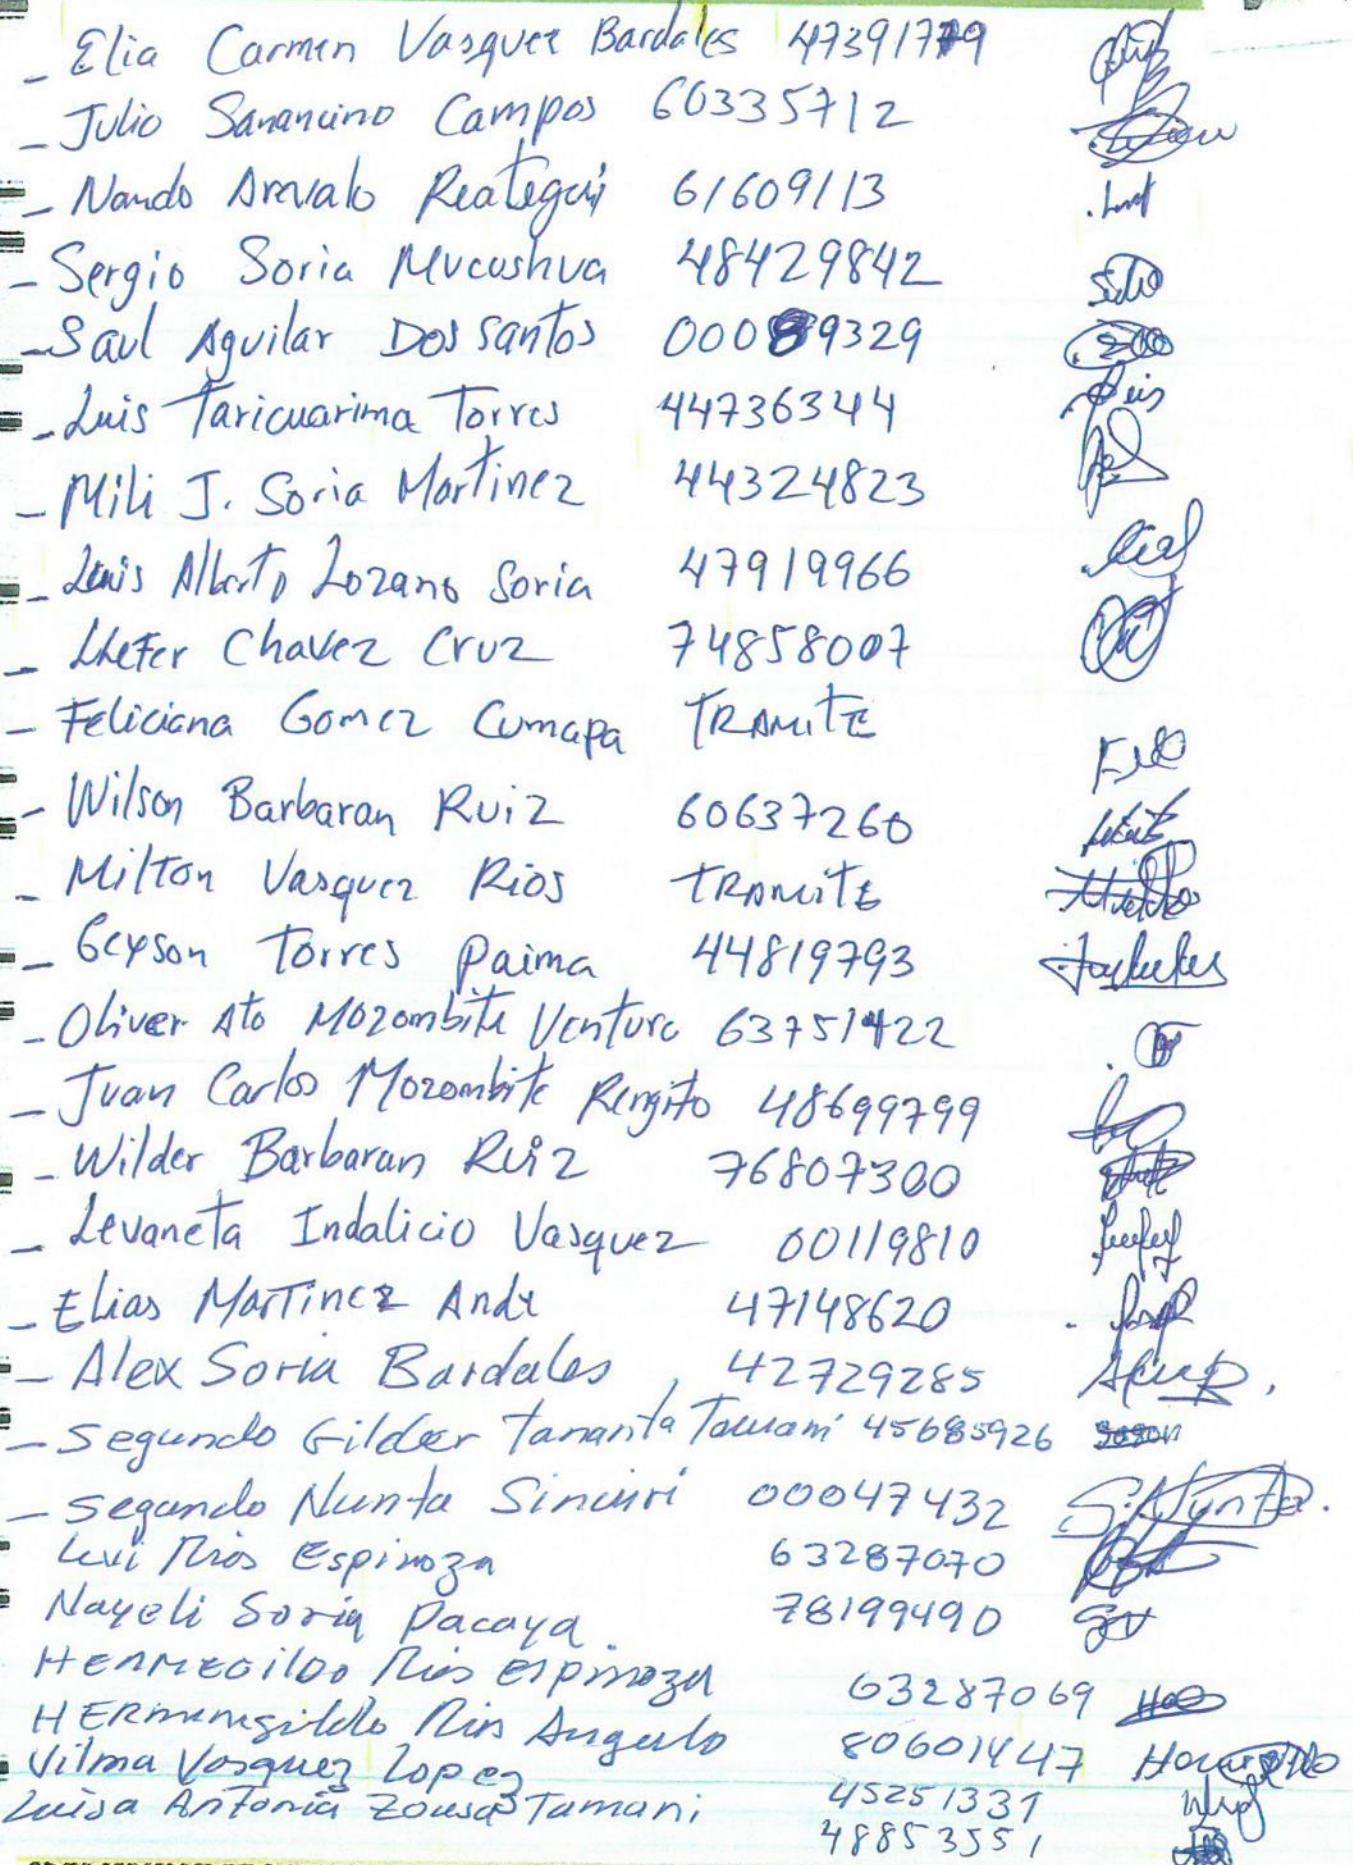 - Elia Carmen Vasquez Bardales 47391779
- Julio Sanancino Campos 60335712
- Nando Arevalo Reategui 61609113
- Sergio Soria Mucushua 48429842
- Saul Aguilar Dos Santos 00089329
- Luis Taricuarima Torres 44736344
- Mili J. Soria Martinez 44324823
- Luis Alberto Lozano Soria 47919966
- Lhefer Chavez Cruz 74858007
- Feliciana Gomez Cumapa TRAMITE
- Wilson Barbaran Ruiz 60637260
- Milton Vasquez Rios TRAMITE
- Geyson Torres Paima 44819793
- Oliver Ato Mozombite Ventura 63751422
- Juan Carlos Mozombite Rengifo 48699799
- Wilder Barbaran Ruiz 76807300
- Levaneta Indalicio Vasquez 00119810
- Elias Martinez Andi 47148620
- Alex Soria Bardales 42729285
- Segundo Gilder Tananta Tamani 45685926
- Segundo Nunta Sinuiri 00047432 S. Nunta.
Levi Rios Espinoza 63287070
Nayeli Soria Pacaya. 78199490
HERMEGILDO Rios Espinoza 63287069
HERmenegildo Rios Angulo 80601447
Vilma Vasquez Lopez 45251331
Luisa Antonia Tamani 48853551